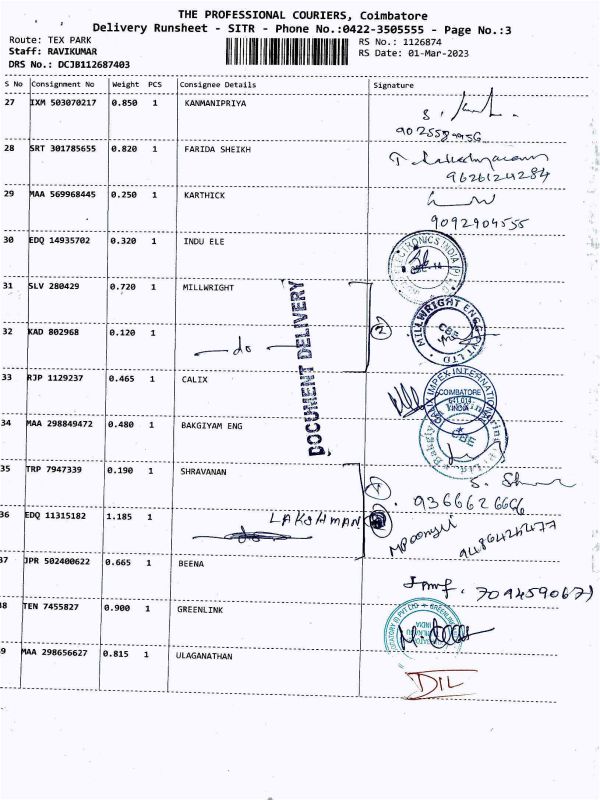 THE PROFESSIONAL COURIERS, Coimbatore
Delivery Runsheet - SITR - Phone No.:0422-3505555 - Page No.:3
Route: TEX PARK
Staff: RAVIKUMAR
DRS No.: DCJB112687403
RS No.: 1126874
RS Date: 01-Mar-2023
S No Consignment No Weight PCS Consignee Details Signature
27 IXM 503070217 0.850 1 KANMANIPRIYA
28 SRT 301785655 0.820 1 FARIDA SHEIKH
9626124284
29 MAA 569968445 0.250 1 KARTHICK
9092904555
30 EDQ 14935702 0.320 1 INDU ELE
ELECTRONICS INDIA
31 SLV 280429 0.720 1 MILLWRIGHT
DOCUMENT DELIVERY
32 KAD 802968 0.120 1 do 2
MILLWRIGHT ENGG PVT LTD
CBE
33 RJP 1129237 0.465 1 CALIX
CALIX IMPEX INTERNATIONAL
COIMBATORE
INDIA
34 MAA 298849472 0.480 1 BAKGIYAM ENG
CBE
35 TRP 7947339 0.190 1 SHRAVANAN 1
9366626666
36 EDQ 11315182 1.185 1 LAKSHMAN
37 JPR 502400622 0.665 1 BEENA
38 TEN 7455827 0.900 1 GREENLINK
39 MAA 298656627 0.815 1 ULAGANATHAN
DIL